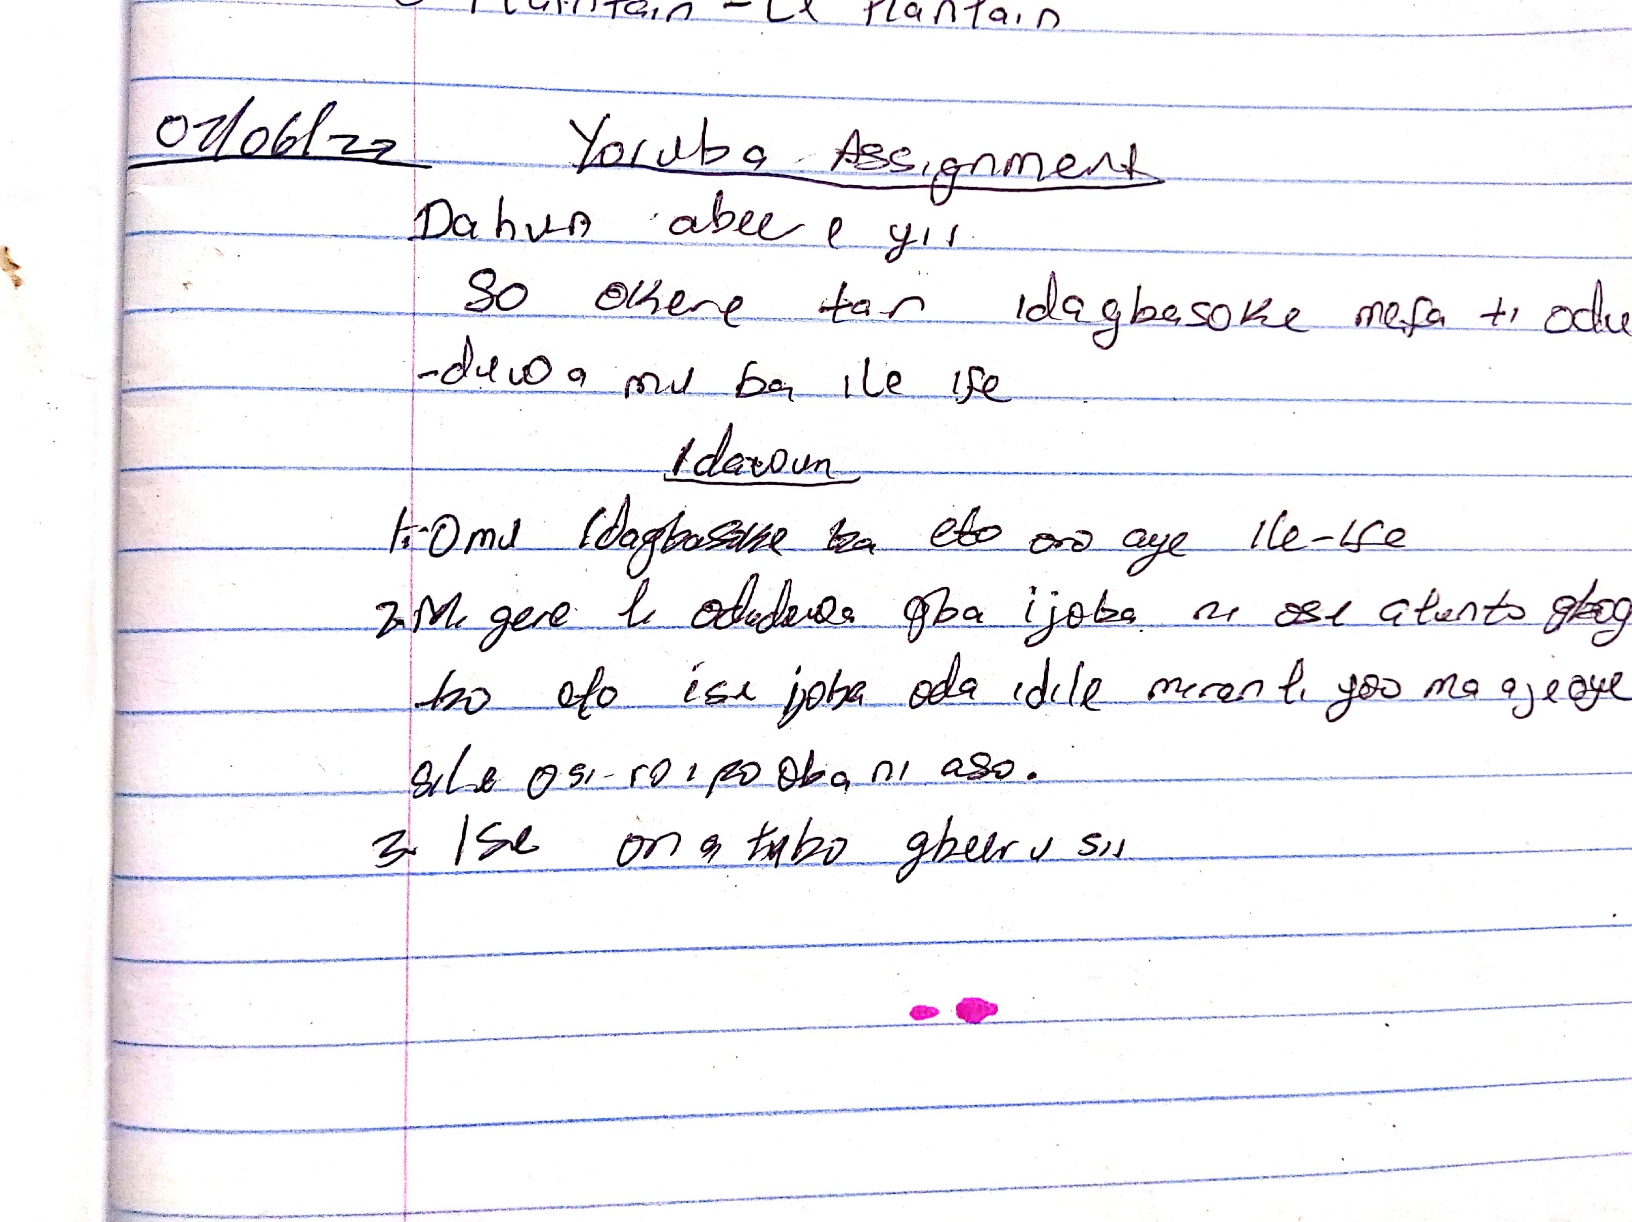 Plantain - Le Plantain
07/06/22 Yoruba Assignment
Dahun abeere yii
So okere tan idagbasoke mefa ti odu
-duwa mu ba ile ife
Idaroun
1. Omu Idagbasoke ba eto oro aye ile-ife
2. gere ti oduduwa gba ijoba ni ose atunto gbog
bo eto ise ijoba oda idile miran ti yoo ma aje oye
sile osi-ro ipo oba ni aso.
3. Ise ona tubo gbeeru sii